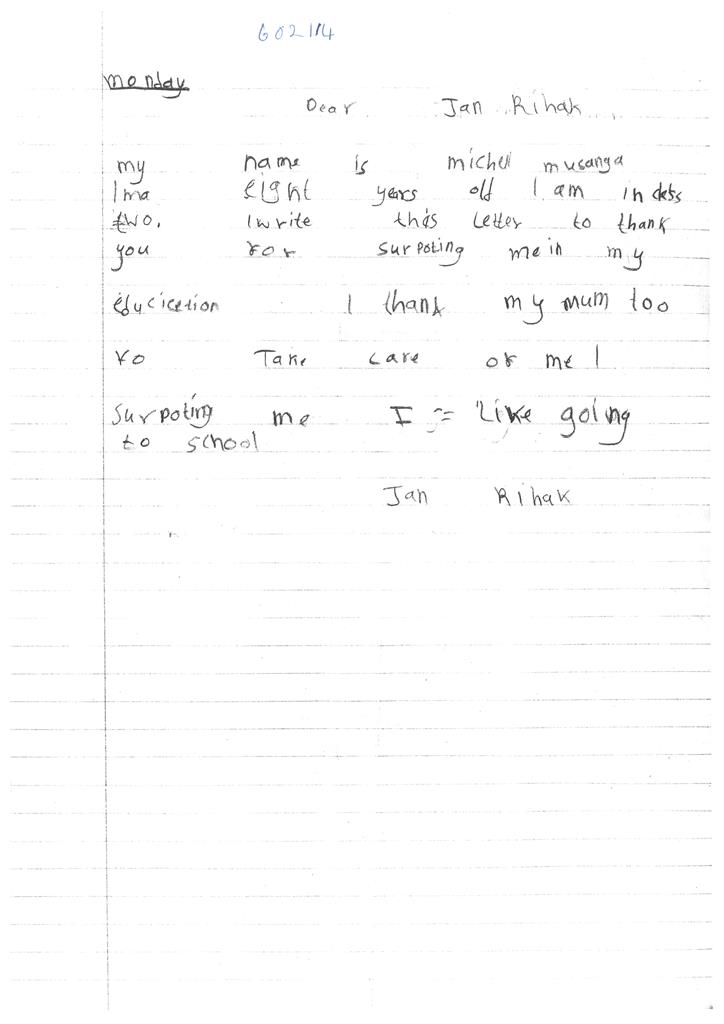 602114
monday
Dear Jan Rihak
my name is michel musanga
Ima eight years old I am in
two. I write this letter to thank
you for surpoting me in my
educicetion I thank my mum too
fo Take care of me I
surpoting me I = Like going
to school
Jan Rihak